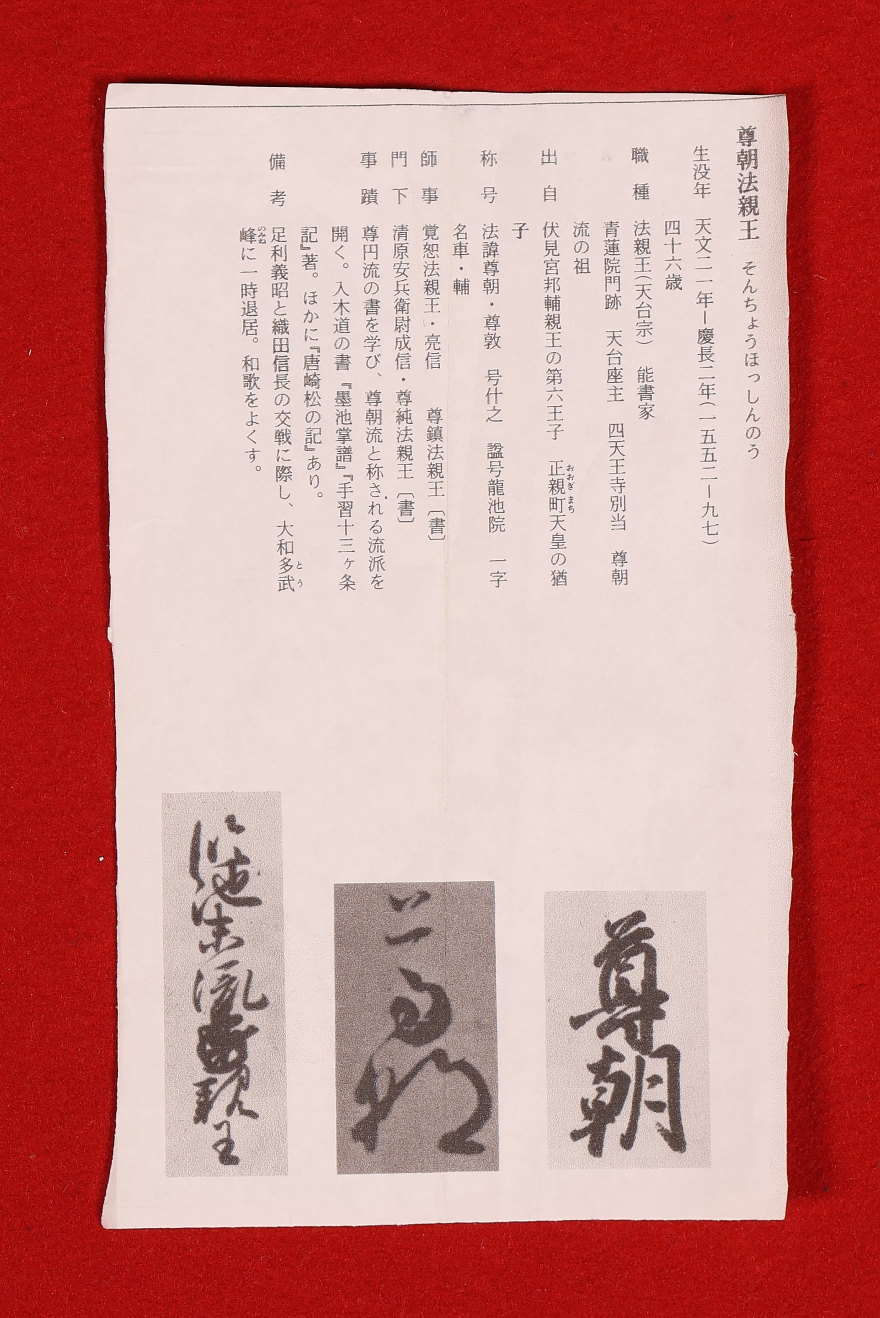 尊朝法親王 そんちょうほっしんのう
生没年 天文二一年ー慶長二年(一五五二ー九七)
四十六歳
職種 法親王(天台宗) 能書家
青蓮院門跡 天台座主 四天王寺別当 尊朝
流の祖
出自 伏見宮邦輔親王の第六王子 正親町天皇の猶
おおぎまち
子
称号 法諱尊朝・尊敦 号什之 諡号龍池院 一字
名車・輔
師事 覚恕法親王・亮信 尊鎮法親王〔書〕
門下 清原安兵衛尉成信・尊純法親王〔書〕
事蹟 尊円流の書を学び、尊朝流と称される流派を
開く。入木道の書『墨池掌譜』『手習十三ヶ条
記』著。ほかに『唐崎松の記』あり。
備考 足利義昭と織田信長の交戦に際し、大和多武
とう
峰に一時退居。和歌をよくす。
のみね
尊朝
尊朝